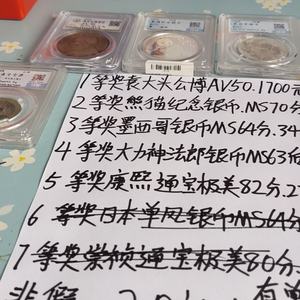 1等奖袁大头公博AV50.1700
2等奖熊猫纪念银币.MS70分
3等奖墨西哥银币MS64分.34
4等奖大力神法郎银币MS63
5等奖康熙通宝极美82分.2
6等奖日本单凤银币MS64分
7等奖崇祯通宝极美80分.